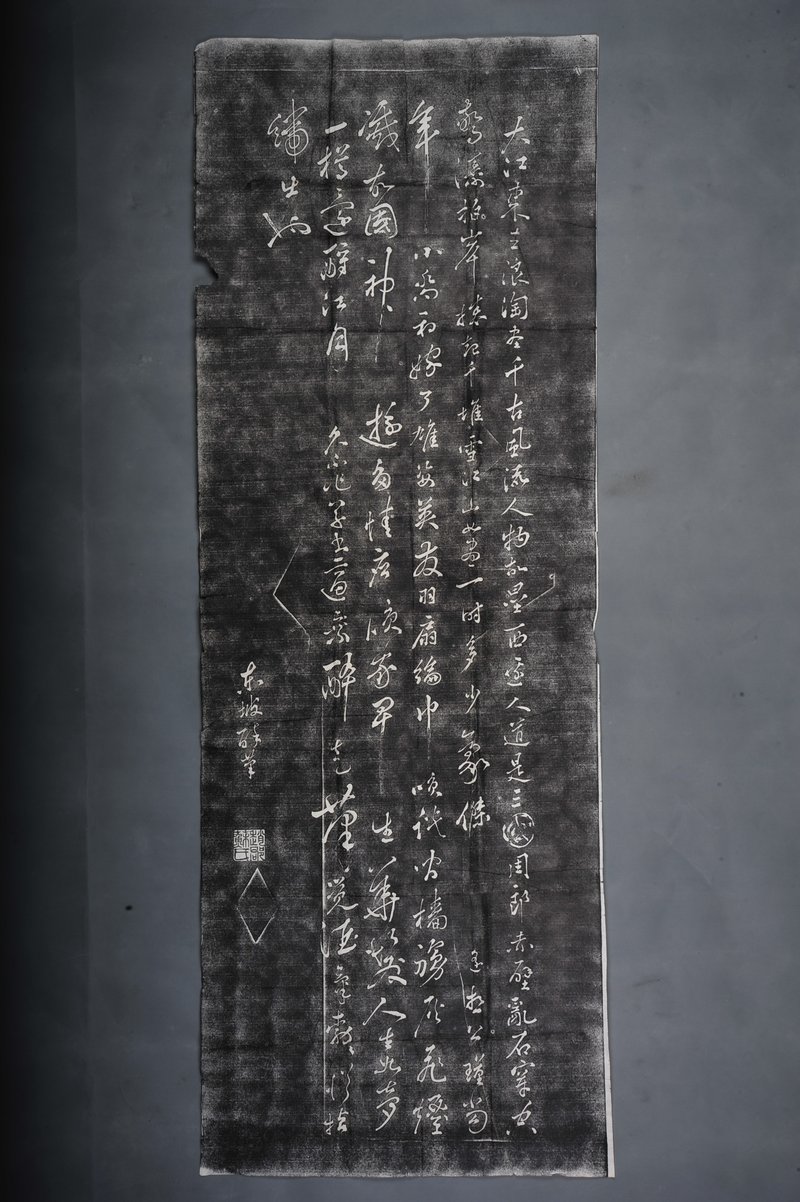 大江東去浪淘盡千古風流人物故壘西邊人道是三國周郎赤壁亂石穿空
驚濤拍岸捲起千堆雪江山如畫一時多少豪傑遙想公瑾當
年小喬初嫁了雄姿英發羽扇綸巾咲談間檣艣灰飛煙
滅故國神遊多情應咲我早生華髮人生如夢
一樽還酹江月久不作草書適乘醉走筆覺酒氣勃勃從指
端出也
東坡醉筆